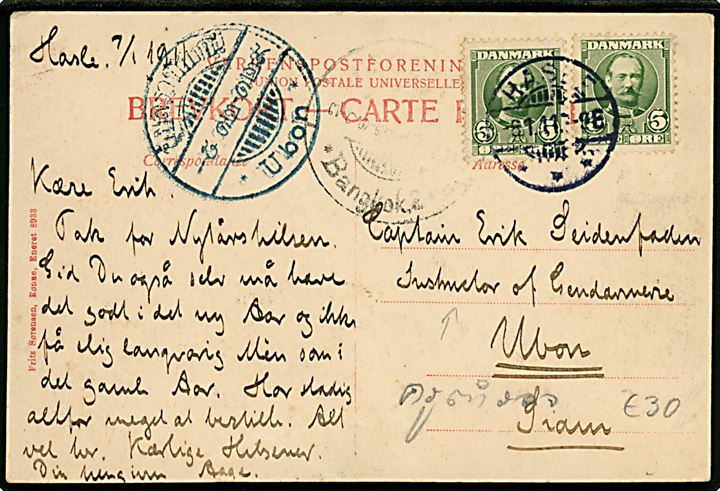 Hasle. 7/1 1911
VERDENSPOSTFORENIN
UNION POSTALE UNIVERSELLE
BREVKORT — CARTE
Correspondance
Adresse
DANMARK
5 5
ØRE
DANMARK
5 5
ØRE
HASLE
8.1.11.
Ubon
Bangkok
Kære Erik.
Tak for Nytårshilsen.
Gid Du også selv må have
det godt i det ny Aar og ikke
få dig langvarig Mén som i
det gamle Aar. Har stadig
altfor meget at bestille. Alt
vel her. Kærlige Hilsener.
Din hengivne Aage.
Captain Erik Seidenfaden
Instructor of Gendarmerie
Ubon
Siam
£30
Frits Sørensen, Rønne, Eneret 8933